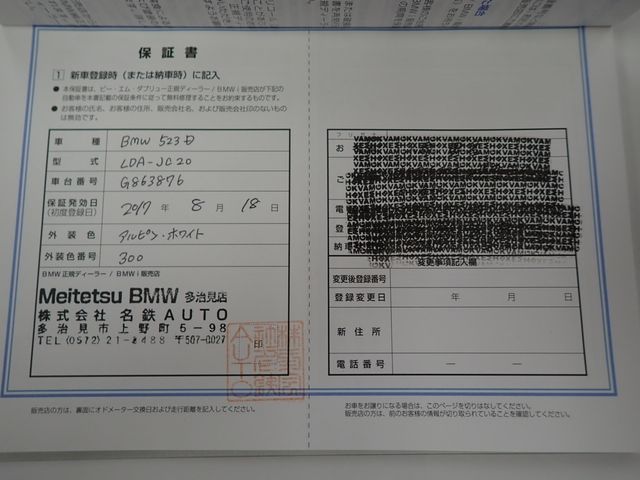 保証書
1 新車登録時(または納車時)に記入
● 本保証書は、ビー・エム・ダブリュー正規ディーラー/BMW i 販売店が下記の
自動車を本書記載の保証条件に従って無料修理することをお約束するものです。
● お客様の氏名、お客様の住所、販売会社名、および販売会社印のないもの
は無効です。
車種 BMW 523d
型式 LDA-JC20
車台番号 G863876
保証発効日
(初度登録日) 2017 年 8 月 18 日
外装色 アルピン・ホワイト
外装色番号 300
BMW 正規ディーラー / BMW i 販売店
Meitetsu BMW 多治見店
株式会社 名鉄AUTO
多治見市上野町5-98
TEL(0572)21-2488 〒507-0027
印
販売店の方は、裏面にオドメーター交換日および走行距離を記入してください。
フリガナ
変更事項記入欄
変更後登録番号
登録変更日 年 月 日
新住所
電話番号 ― ―
お車をお譲りになる場合は、このページを切りはなしてください。
販売店の方は、前のお客様の情報が切り取られていることを確認してください。